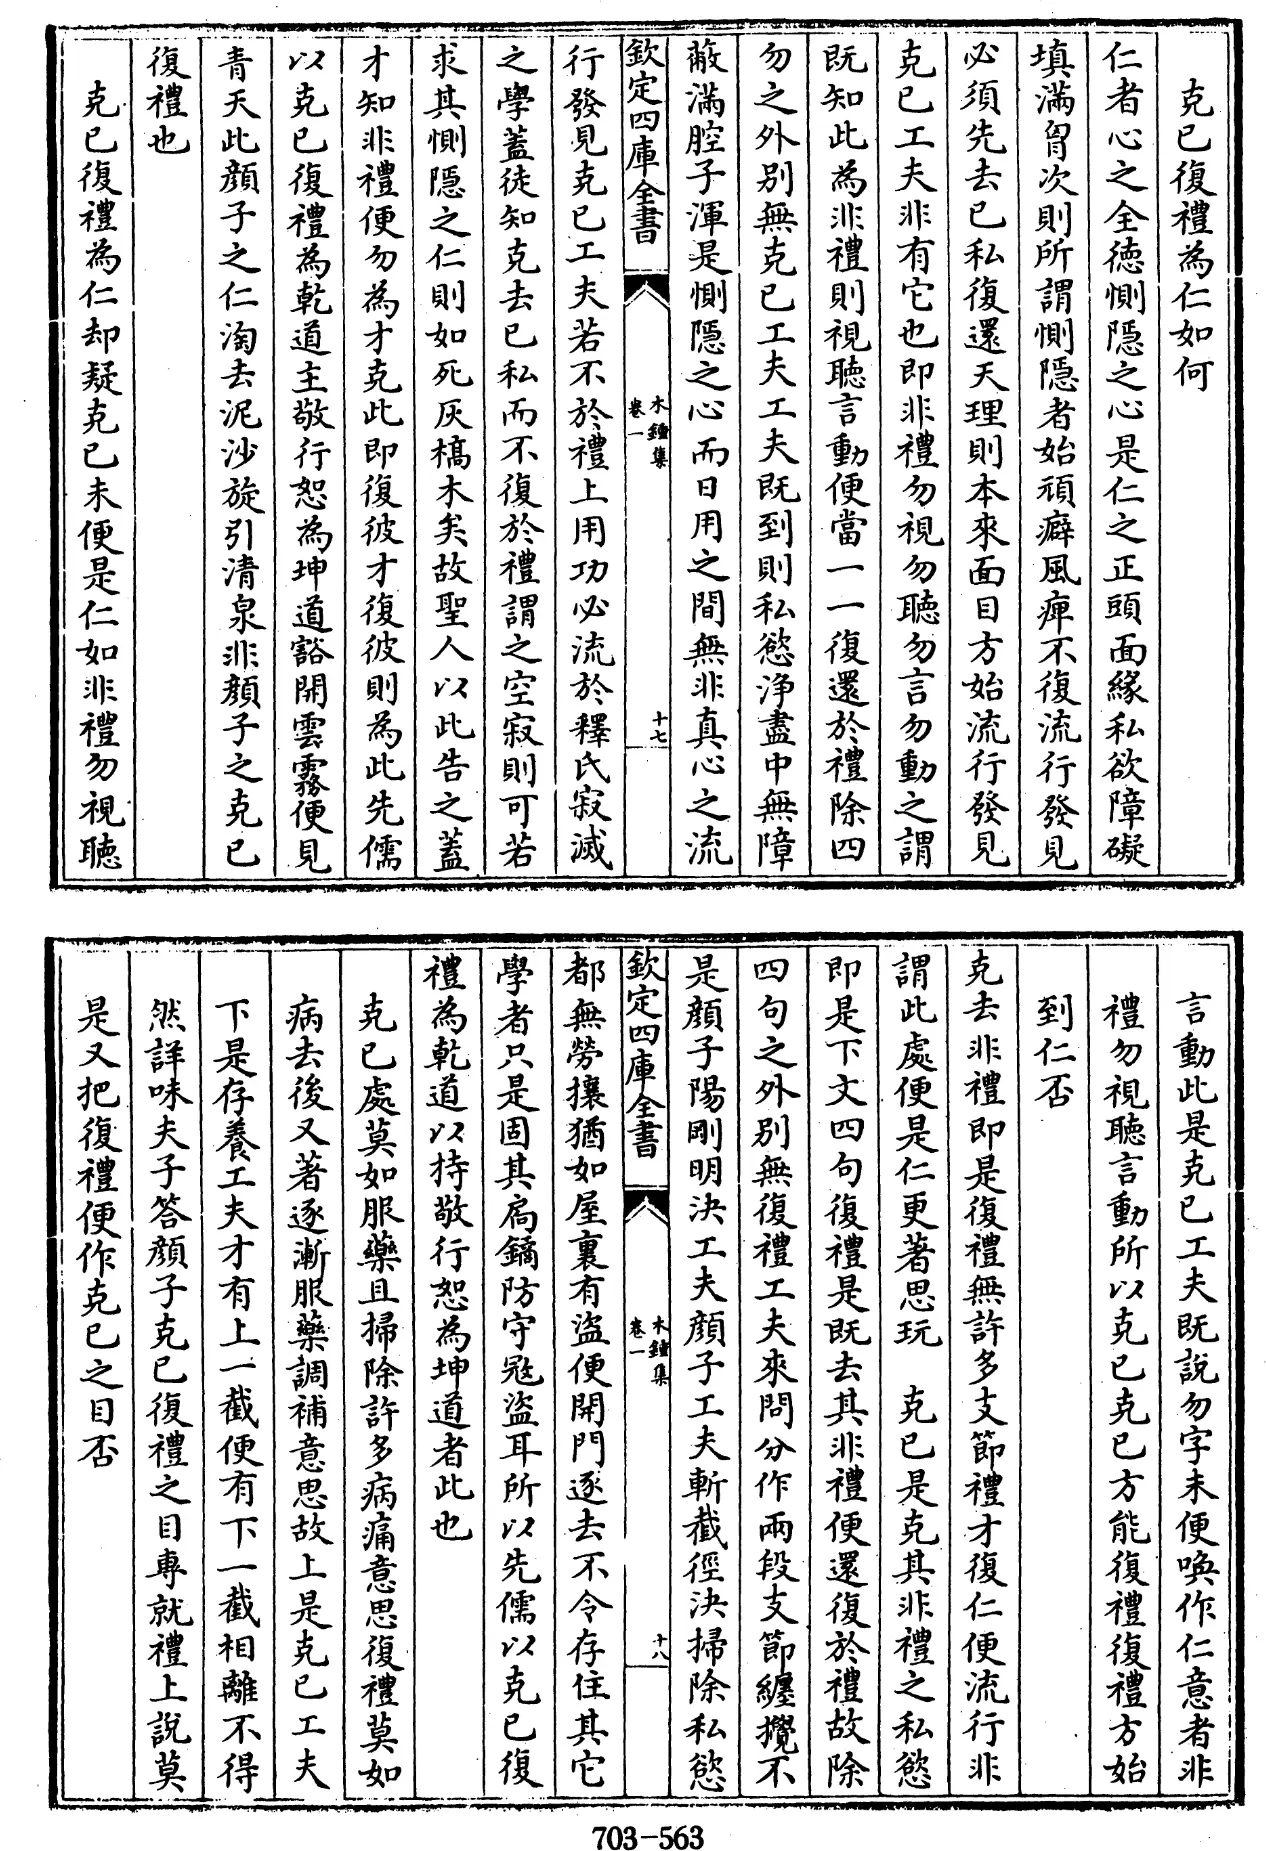 克已復禮為仁如何
仁者心之全徳惻隠之心是仁之正頭面緣私欲障礙
填滿胷次則所謂惻隠者始頑癖風痺不復流行發見
必須先去已私復還天理則本來面目方始流行發見
克已工夫非有它也即非禮勿視勿聴勿言勿動之謂
既知此為非禮則視聴言動便當一一復還於禮除四
勿之外别無克已工夫工夫既到則私慾浄盡中無障
蔽滿腔子渾是惻隠之心而日用之間無非真心之流
欽定四庫全書
木鍾集
卷一
十七
行發見克已工夫若不於禮上用功必流於釋氏寂滅
之學蓋徒知克去已私而不復於禮謂之空寂則可若
求其惻隠之仁則如死灰槁木矣故聖人以此告之蓋
才知非禮便勿為才克此即復彼才復彼則為此先儒
以克已復禮為乾道主敬行恕為坤道豁開雲霧便見
青天此顔子之仁淘去泥沙旋引清泉非顔子之克已
復禮也
克已復禮為仁却疑克已未便是仁如非禮勿視聴
言動此是克已工夫既說勿字未便喚作仁意者非
禮勿視聴言動所以克已克已方能復禮復禮方始
到仁否
克去非禮即是復禮無許多支節禮才復仁便流行非
謂此處便是仁更著思玩　克已是克其非禮之私慾
即是下文四句復禮是既去其非禮便還復於禮故除
四句之外别無復禮工夫來問分作兩段支節纏攪不
是顔子陽剛明決工夫顔子工夫斬截徑決掃除私慾
欽定四庫全書
木鍾集
卷一
十八
都無勞攘猶如屋裏有盜便開門逐去不令存住其它
學者只是固其扃鐍防守冦盜耳所以先儒以克已復
禮為乾道以持敬行恕為坤道者此也
克已處莫如服藥且掃除許多病痛意思復禮莫如
病去後又著逐漸服藥調補意思故上是克已工夫
下是存養工夫才有上一截便有下一截相離不得
然詳味夫子答顔子克已復禮之目專就禮上說莫
是又把復禮便作克已之目否
703-563